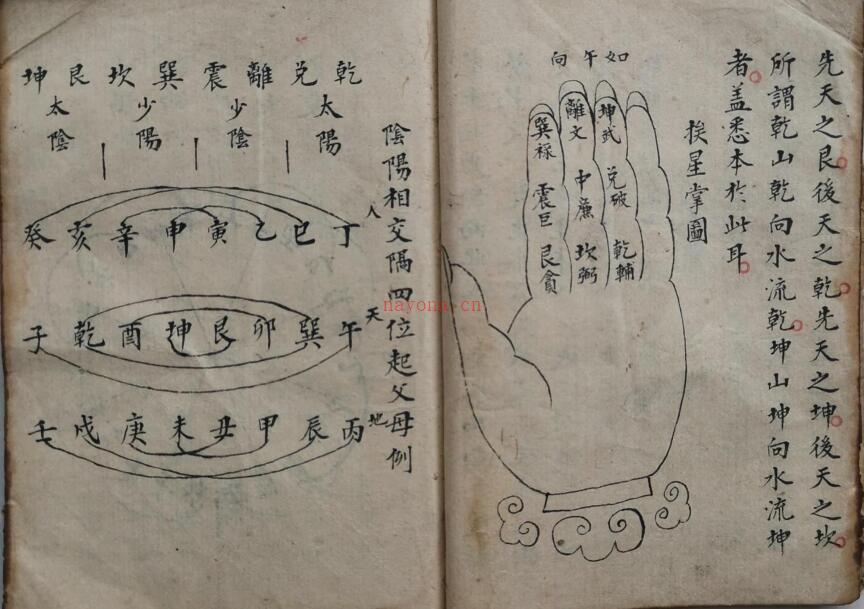 先天之艮後天之乾先天之坤後天之坎
所謂乾山乾向水流乾坤山坤向水流坤
者蓋悉本於此耳
挨星掌圖
如午向
坤武
兌破
乾輔
離文
中廉
坎弼
巽祿
震巨
艮貪
陰陽相交隔四位起父母例
乾兌離震巽坎艮坤
太陽
少陰
少陽
太陰
人
丁巳乙寅申辛亥癸
天
午巽卯艮坤酉乾子
地
丙辰甲丑未庚戌壬
nayona.cn